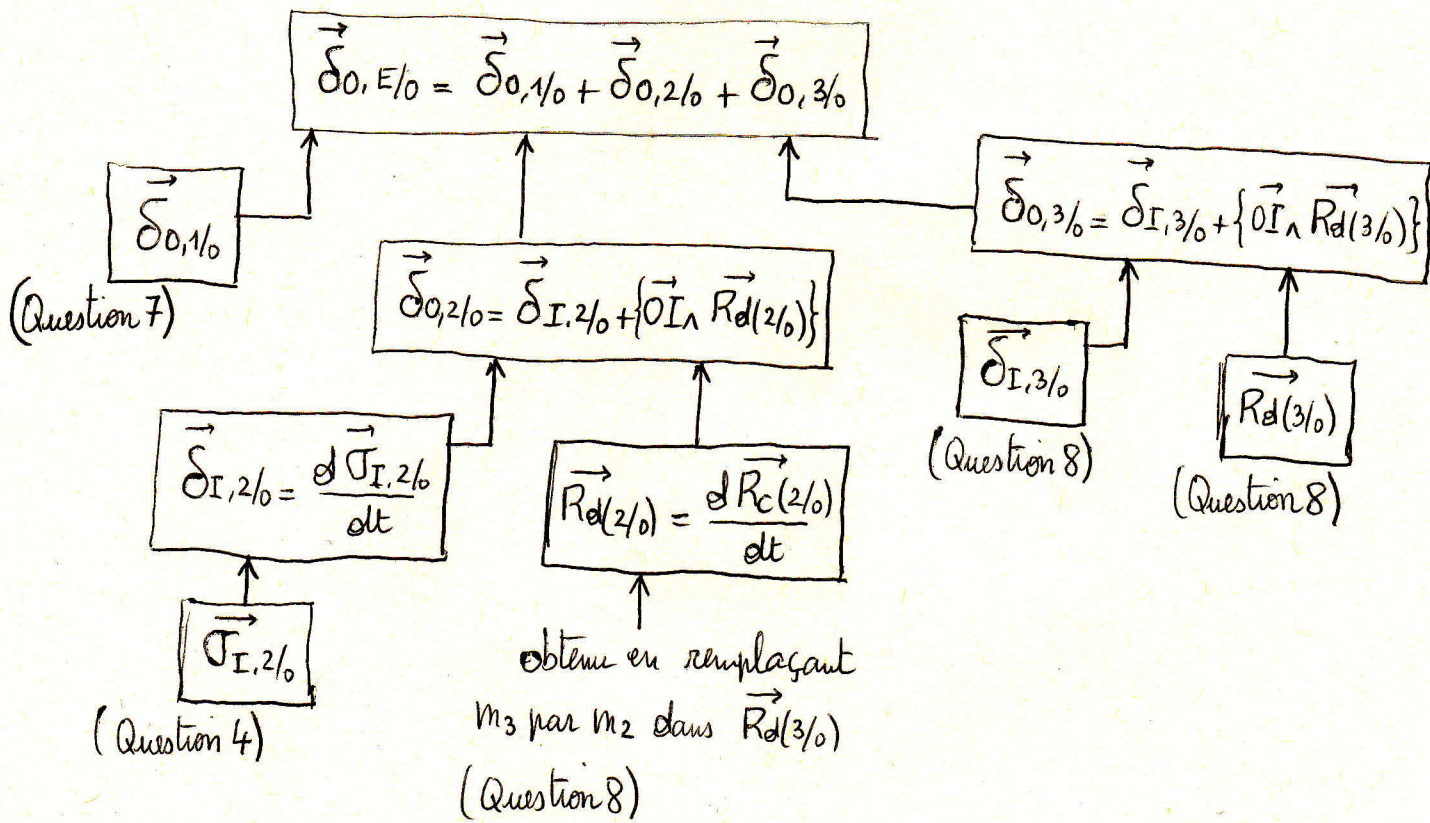 δ⃗O,E/0 = δ⃗O,1/0 + δ⃗O,2/0 + δ⃗O,3/0
δ⃗O,1/0
(Question 7)
δ⃗O,3/0 = δ⃗I,3/0 + {OI⃗ ∧ Rd(3/0)⃗}
δ⃗O,2/0 = δ⃗I,2/0 + {OI⃗ ∧ Rd(2/0)⃗}
δ⃗I,3/0
(Question 8)
Rd(3/0)⃗
(Question 8)
δ⃗I,2/0 = dσ⃗I,2/0 / dt
Rd(2/0)⃗ = dRc(2/0)⃗ / dt
σ⃗I,2/0
(Question 4)
obtenu en remplaçant
m3 par m2 dans Rd(3/0)⃗
(Question 8)